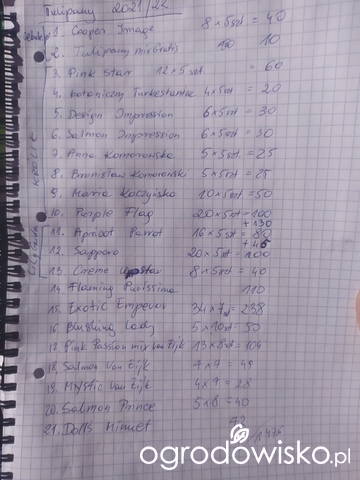 Tulipany 2021/22
1. Cooper Image 8 x 5szt = 40
2. Tulipany mix 10
3. Pink Star 12 x 5 szt = 60
4. botaniczny Turkestanica 4x5szt = 20
5. Design Impression 6x5szt = 30
6. Salmon Impression 6x5szt = 30
7. Anna Komorowska 5x5szt = 25
8. Bronisław Komorowski 5x5szt = 25
9. Maria Kaczyńska 10x5szt = 50
10. Purple Flag 20x5szt = 100
+ 130
11. Apricot Parrot 16x5szt = 80
+ 45
12. Sapporo 20x5szt = 100
13. Creme Upstar 8x5szt = 40
14. Flaming Purissima 110
15. Exotic Emperor 34x7 = 238
16. Blushing Lady 5x10szt = 50
17. Pink Passion mix van Eijk 13x8szt = 104
18. Salmon van Eijk 7x7 = 49
19. Mystic van Eijk 4x7 = 28
20. Salmon Prince 5x8 = 40
21. Dolls Minuet 72
ogrodowisko.pl